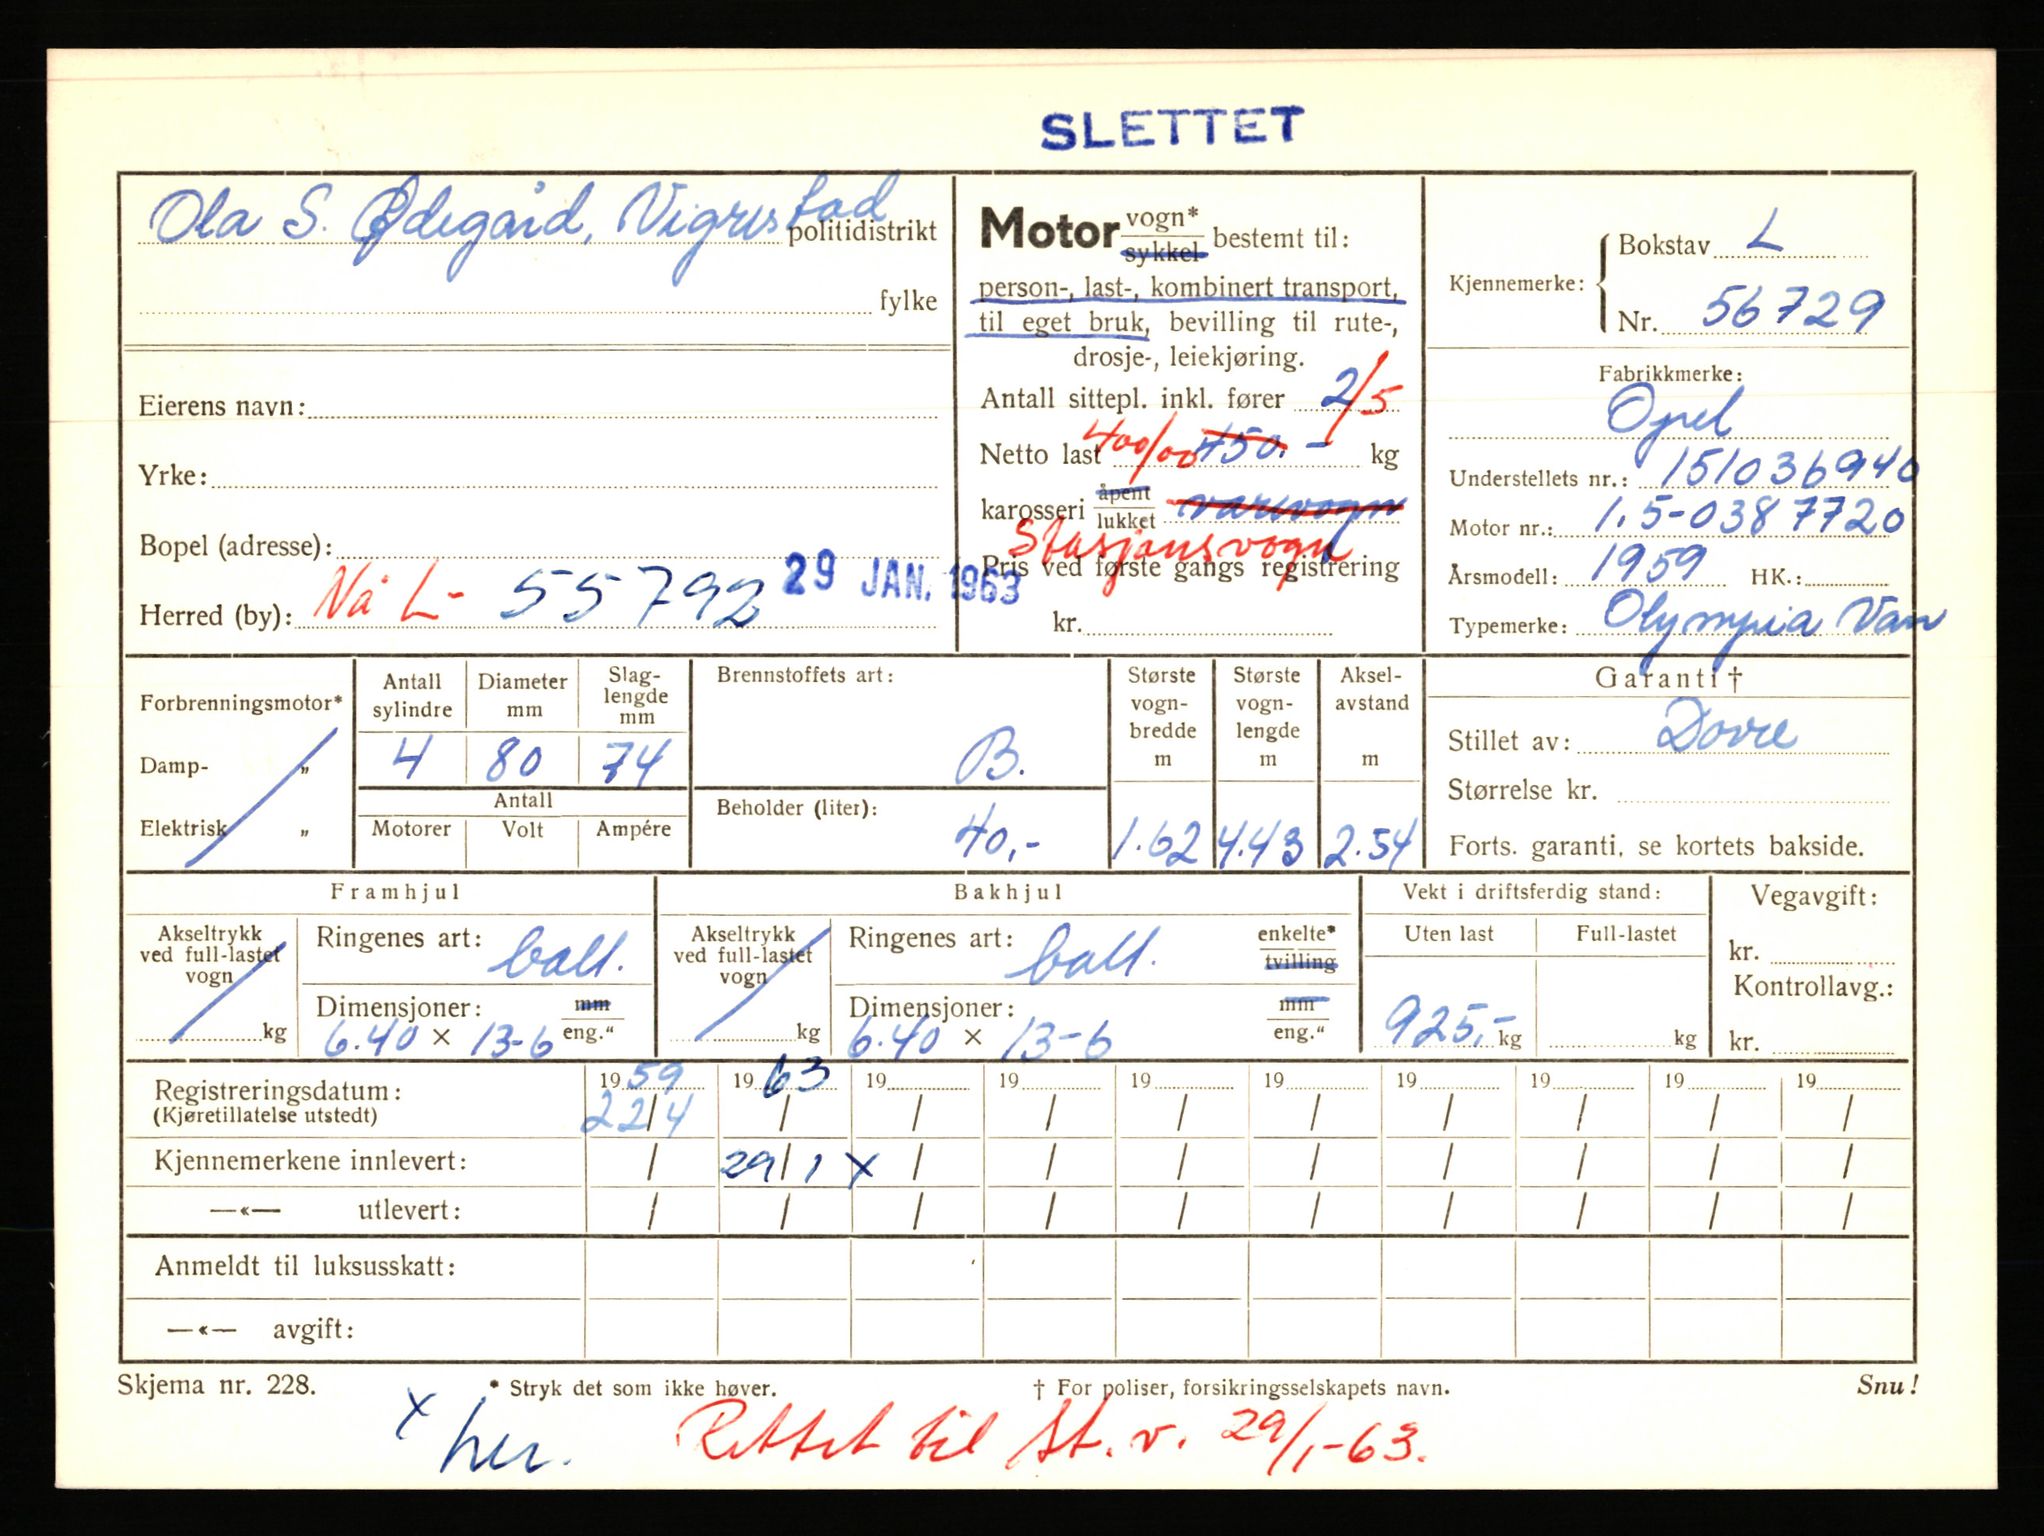 SLETTET
Ola S. Ødegård, Vigrestad
politidistrikt
fylke
Eierens navn:
Yrke:
Bopel (adresse):
29 JAN. 1963
Herred (by): Nå L- 55792
Motor vogn* sykkel bestemt til:
person-, last-, kombinert transport,
til eget bruk, bevilling til rute-,
drosje-, leiekjøring.
Antall sittepl. inkl. fører 2/5
Netto last 400/00 450.- kg
karosseri åpent lukket varevogn
Stasjonsvogn
Pris ved første gangs registrering
kr.
Kjennemerke: Bokstav L
Nr. 56729
Fabrikkmerke:
Opel
Understellets nr.: 151036940
Motor nr.: 1.5-0387720
Årsmodell: 1959 HK.:
Typemerke: Olympia Van
Forbrenningsmotor*
Damp- „
Elektrisk „
Antall sylindre
Diameter mm
Slag-lengde mm
4 80 74
Antall
Motorer Volt Ampére
Brennstoffets art:
B.
Beholder (liter):
40,-
Største vogn-bredde m
1.62
Største vogn-lengde m
4.43
Aksel-avstand m
2.54
Garanti †
Stillet av: Dovre
Størrelse kr.
Forts. garanti, se kortets bakside.
Framhjul
Akseltrykk
ved full-lastet
vogn
kg
Ringenes art: ball.
Dimensjoner: mm
6.40 × 13-6 eng.“
Bakhjul
Akseltrykk
ved full-lastet
vogn
kg
Ringenes art: ball. enkelte* tvilling
Dimensjoner: mm
6.40 × 13-6 eng.“
Vekt i driftsferdig stand:
Uten last Full-lastet
925,- kg kg
Vegavgift:
kr.
Kontrollavg.:
kr.
Registreringsdatum: 1959 1963 19 19 19 19 19 19 19 19
(Kjøretillatelse utstedt) 22/4 / / / / / / / / /
Kjennemerkene innlevert: / 29/1 x / / / / / / / /
—«— utlevert: / / / / / / / / / /
Anmeldt til luksusskatt:
—«— avgift:
Skjema nr. 228. * Stryk det som ikke høver. † For poliser, forsikringsselskapets navn. Snu!
x her. Rettet til st. v. 29/1-63.